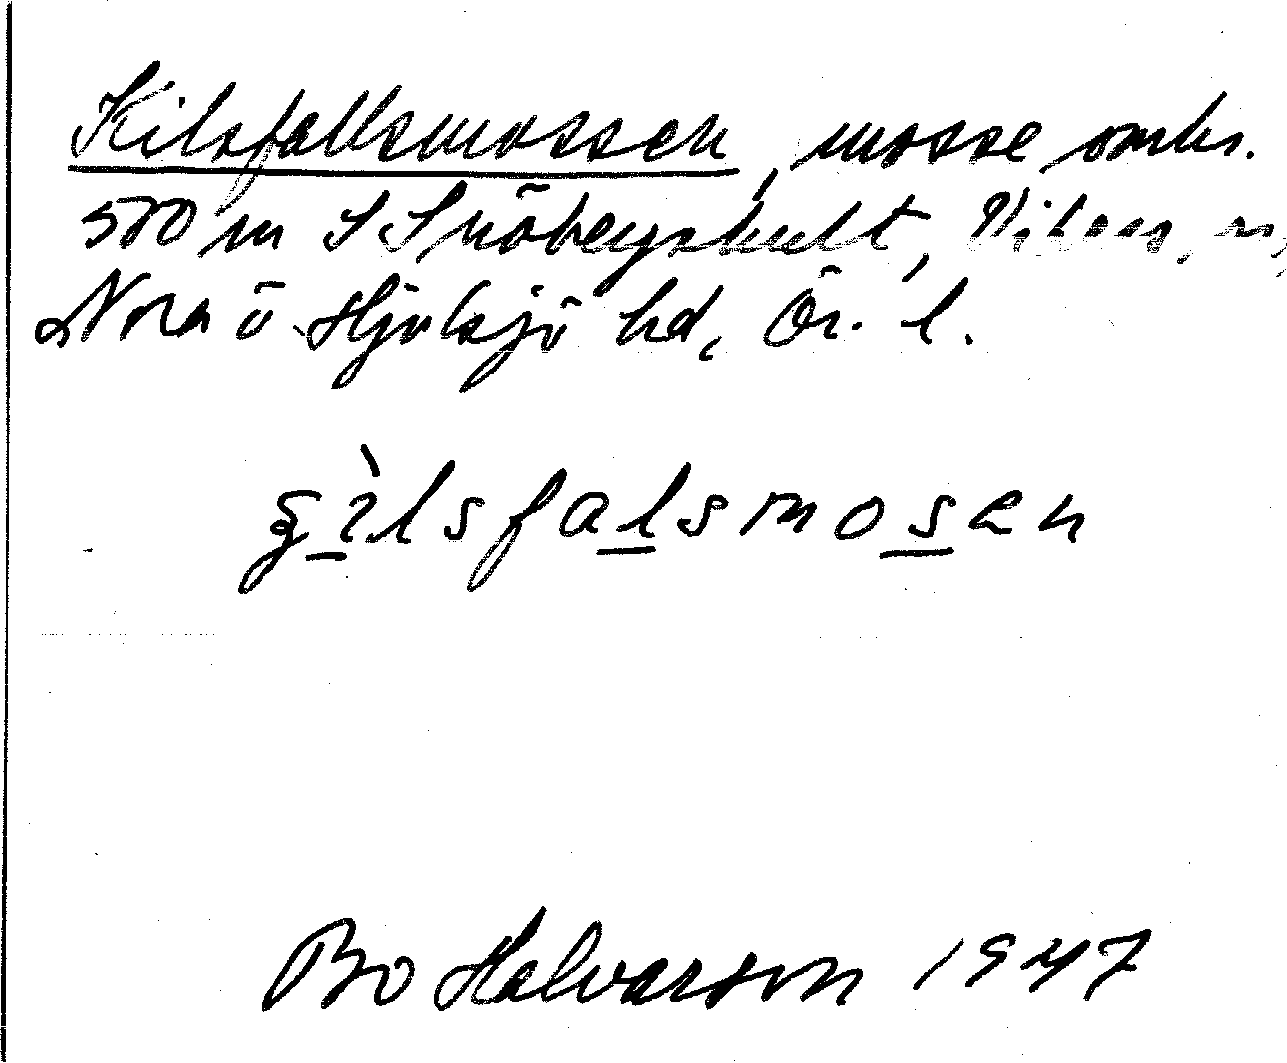 Kilsfallsmossen, mosse omkr.
500 m S Snöbergshult,
Nora o Hjulsjö hd, Ör. l.
gilsfalsmosen
Bo Halvarson 1947